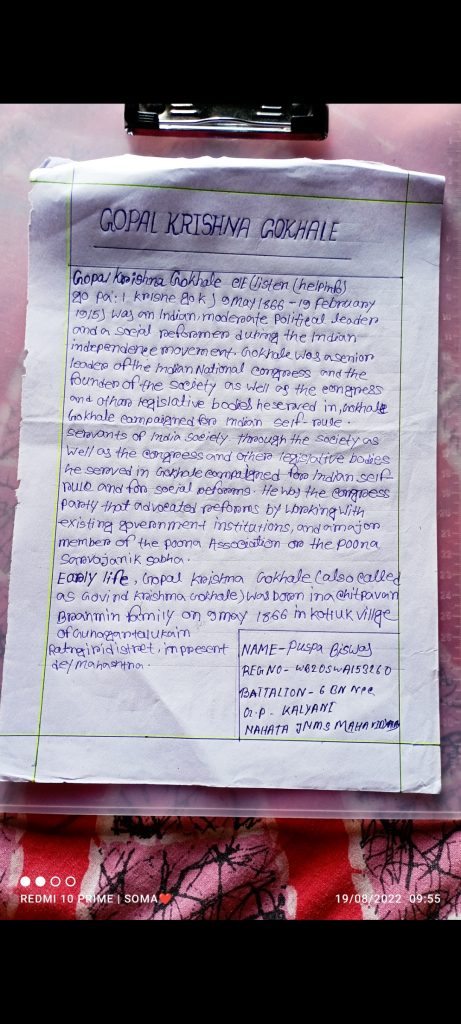 GOPAL KRISHNA GOKHALE
Gopal Krishna Gokhale CIE (listen (helpinfo)
go pa: l krisne gok) 9 May 1866 - 19 february
1915) was an Indian, moderate Political leader
and a social reformer during the Indian
independence movement. Gokhale was a senior
leader of the Indian National congress and the
founder of the society as well as the congress
and other legislative bodies he served in, Gokhale
Gokhale campaigned for Indian self-rule.
servants of India society through the society as
well as the congress and other legislative bodies
he served in Gokhale campaigned for Indian self
rule and for social reforms. He was the congress
party that advocated reforms by working with
existing government institutions, and a major
member of the poona Association or the poona
Sarvajanik sabha.
Early life, Gopal Krishna Gokhale (also called
as Govind Krishna Gokhale) was born in a chitpavan
Brahmin family on 9 may 1866 in kotluk villge
of
in present
de/ Maharashtra.
NAME - Puspa Biswas
REG NO - WB20SWA153260
BATTALION - 6 BN NCC
G.P - KALYANI
NAHATA JNMS